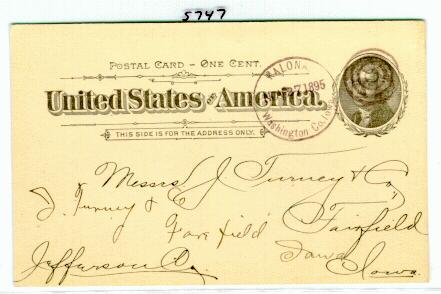 5747
POSTAL CARD – ONE CENT.
United States of America.
THIS SIDE IS FOR THE ADDRESS ONLY.
KALONA
7 1895
Washington Co. Iowa
Messrs J Turney & Co,
J. Turney & C
Fairfield
Fairfield
Iowa
Iowa.
Jefferson Co.